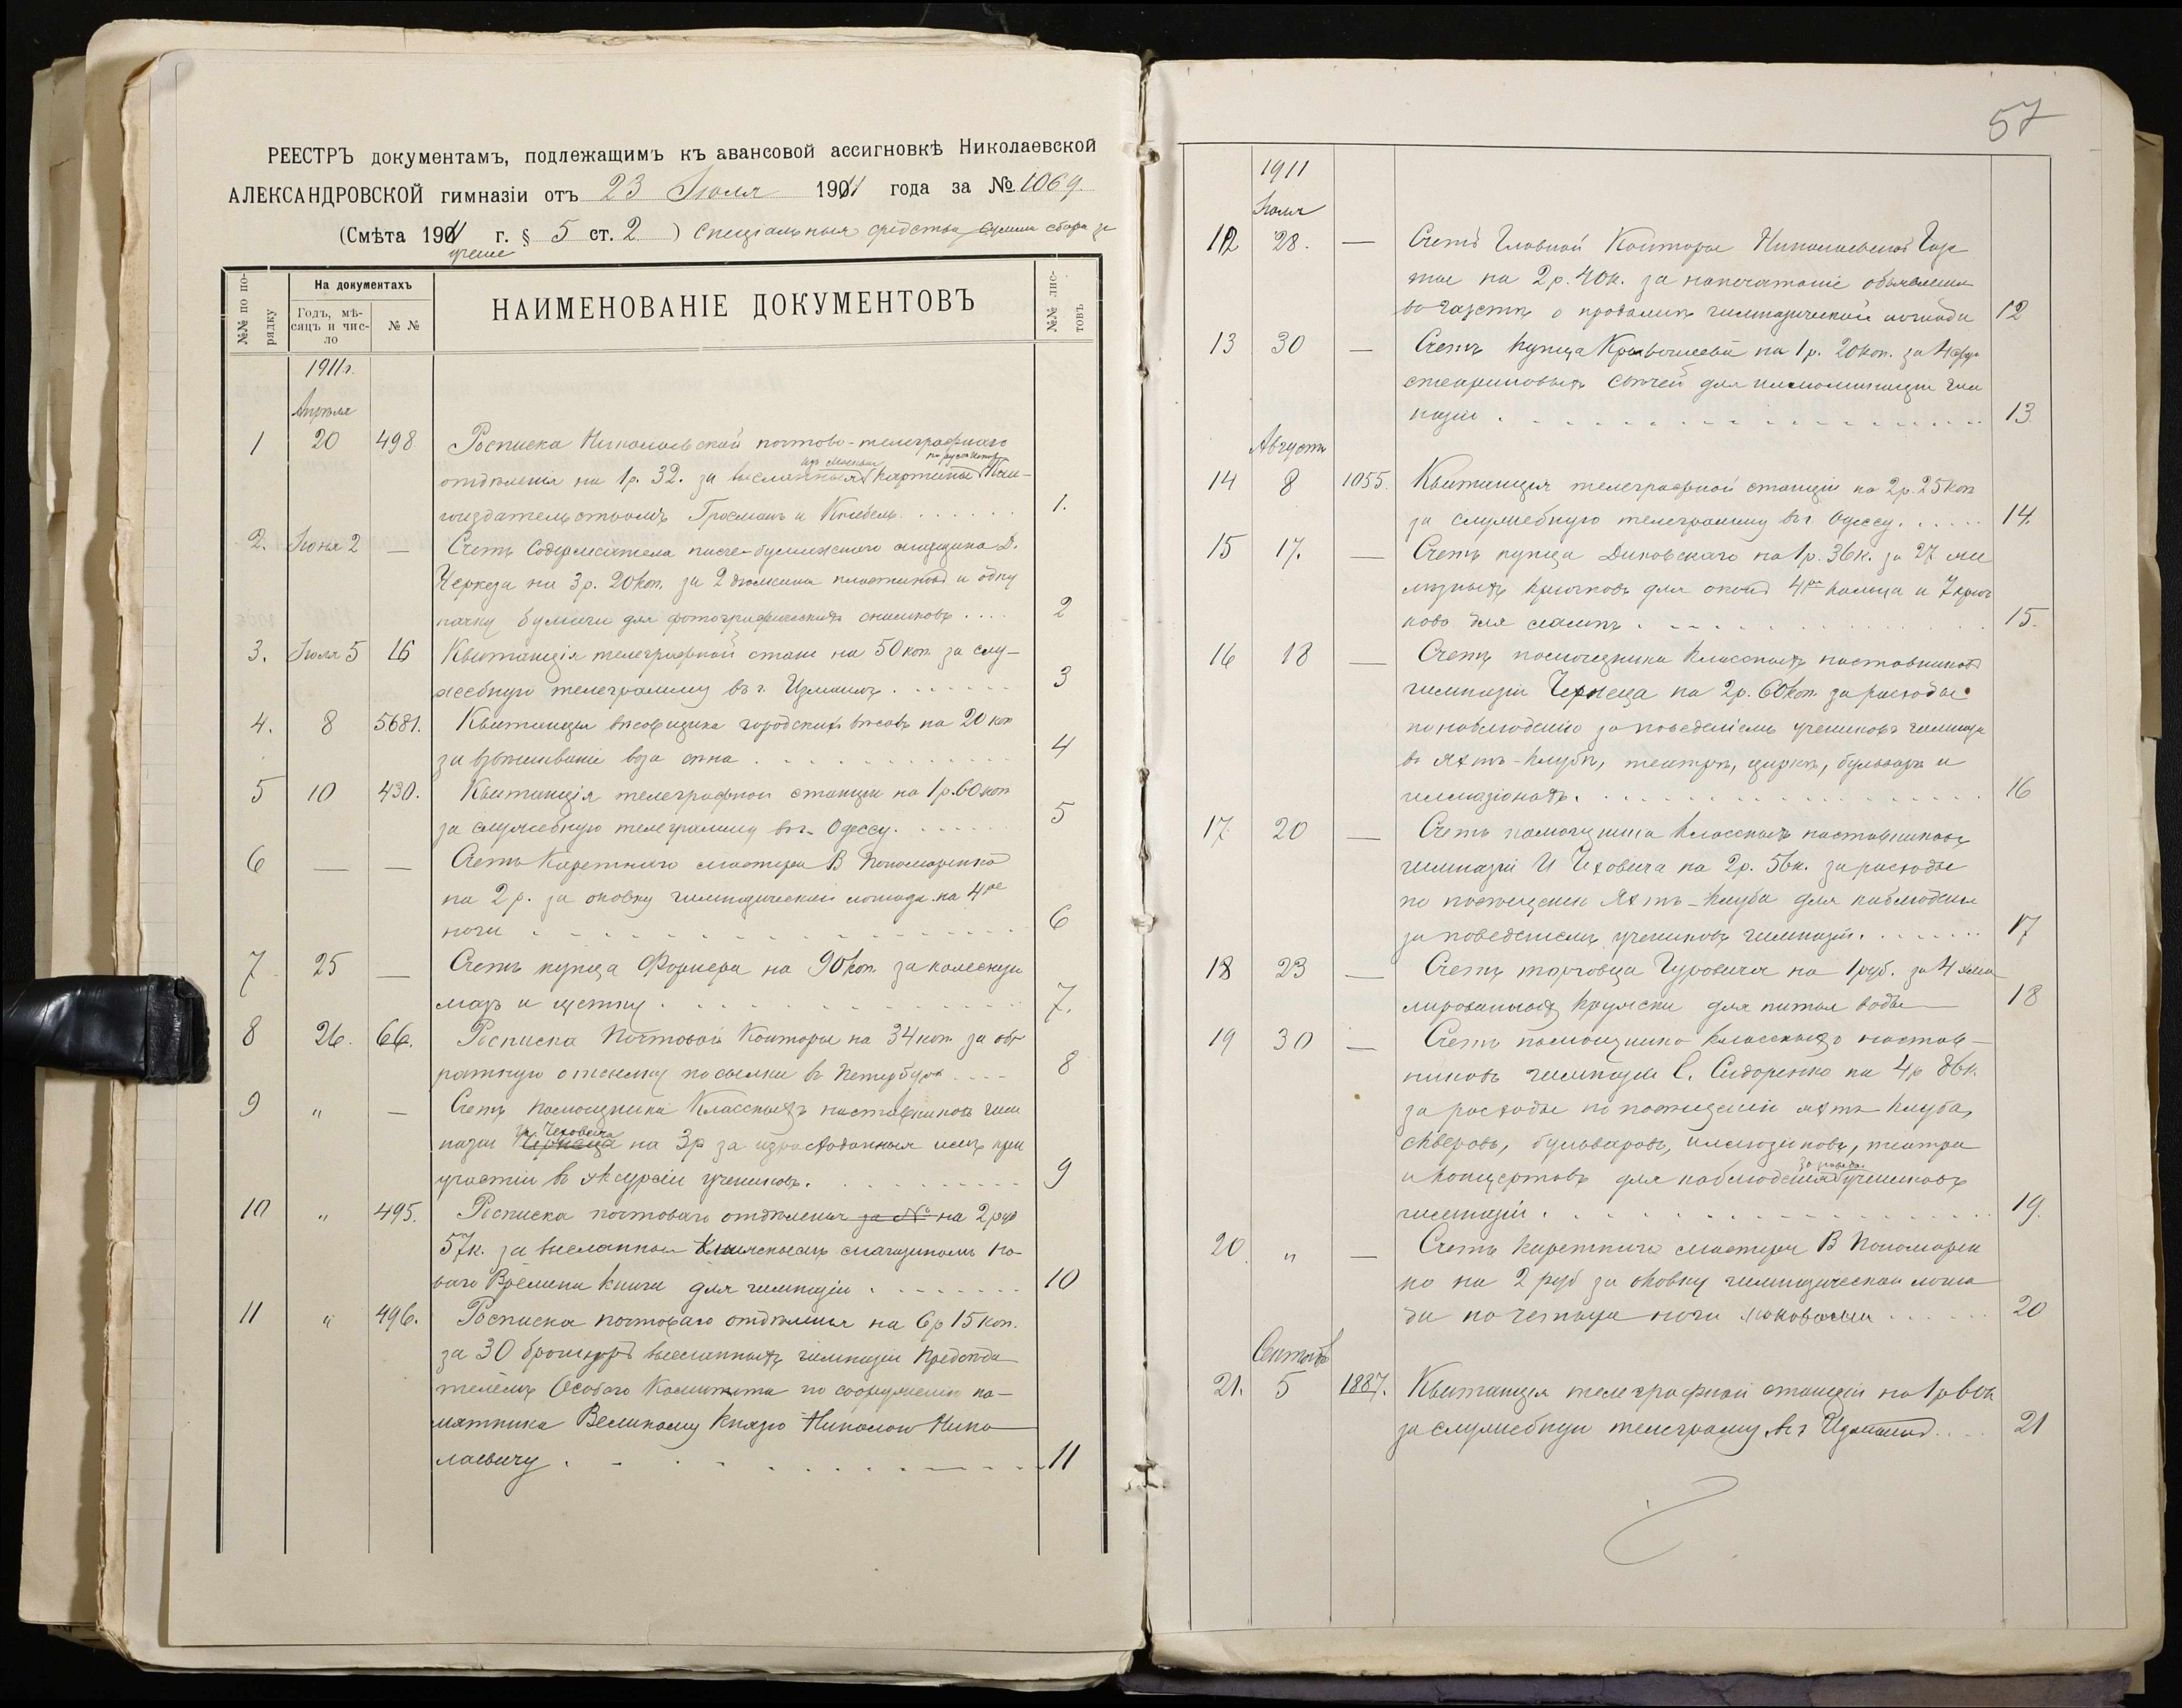 РЕЕСТРЪ документамъ, подлежащимъ къ авансовой ассигновкѣ Николаевской
АЛЕКСАНДРОВСКОЙ гимназіи отъ 23 Іюля 1911 года за № 1069.
(Смѣта 1911 г. § 5 ст. 2 ) Спеціальныя средства сумма сбора за
ученіе
№№ по порядку
На документахъ
Годъ, мѣсяцъ и число
№ №
НАИМЕНОВАНІЕ ДОКУМЕНТОВЪ
№№ листовъ
1911 г.
Апрѣля
1 20 498 Росписка Николаевской почтово-телеграфнаго
изъ Москвы по русск. истор.
отдѣленія на 1р. 32. за высланныя картины Кни-
гоиздательствомъ Гросманъ и Кнебель. 1.
2. Іюня 2 — Счетъ Содержателя писче-бумажнаго магазина Д.
Черкеза на 3р. 20 коп. за 2 дюжины пластинокъ и одну
пачку бумаги для фотографическихъ снимковъ . . . . 2
3. Іюля 5 16 Квитанція телеграфной стан на 50 коп. за слу-
жебную телеграмму въ г. Измаилъ. 3
4. 8 5681. Квитанція вѣсовщика городскихъ вѣсовъ на 20 коп
за взвѣшиваніе воза сѣна . 4
5 10 430. Квитанція телеграфной станціи на 1р. 60 коп
за служебную телеграмму въ г. Одессу. 5
6 — — Счетъ Каретнаго мастера В Пономаренко
на 2 р. за оковку гимназической лошади на 4ре
ноги . 6
7 25 — Счетъ купца Форнера на 90 коп. за колесную
мазь и щетку . 7.
8 26. 66. Росписка Почтовой Конторы на 34 коп. за об-
ратную отсылку посылки въ Петербургъ . . . . 8
9 „ — Счетъ помощника Классныхъ наставниковъ гим
И. Чеховича
назіи Чернеца на 3р за израсходованныя имъ при
участіи въ экскурсіи учениковъ. 9
10 „ 495. Росписка почтоваго отдѣленія за № на 2 руб
57к. за высланныя Книжнымъ магазиномъ Но-
ваго Времени книги для гимназіи . 10
11 „ 496. Росписка почтоваго отдѣленія на 6р 15 коп.
за 30 брошюръ высланныхъ гимназіи Предсѣда
телемъ Особаго Комитета по сооруженію па-
мятника Великому Князю Николаю Нико
лаевичу . 11
57
1911
Іюля
12 28. — Счетъ Главной Конторы Николаевской Газе
ты на 2р. 40к. за напечатаніе объявленія
въ газетѣ о продажѣ гимназической лошади 12
13 30 — Счетъ купца на 1р. 20 коп. за 4 фун
стеариновыхъ свѣчей для иллюминаціи гим
назіи . 13.
Августъ
14 8 1055. Квитанція телеграфной станціи на 2р. 25 коп
за служебную телеграмму въ г. Одессу. 14.
15 17. — Счетъ купца Диковскаго на 1р. 36к. за 27 же
лѣзныхъ крючковъ для оконъ 4ре кольца и 7 крюч
ковъ для лампъ . 15.
16 18 — Счетъ помощника классныхъ наставниковъ
гимназіи Чернеца на 2р. 60 коп. за расходы
по наблюденію за поведеніемъ учениковъ гимназіи
въ яхтъ-клубѣ, театрѣ, циркѣ, бульварѣ и
иллюзіонахъ. 16
17. 20 — Счетъ помощника классныхъ наставниковъ
гимназіи И Чеховича на 2р. 56к. за расходы
по посѣщенію Яхтъ-клуба для наблюденія
за поведеніемъ учениковъ гимназіи. 17
18 23 — Счетъ торговца Гуровича на 1 руб. за 4 эма
лированныхъ кружки для питья воды 18
19 30 — Счетъ помощника классныхъ настав-
никовъ гимназіи С. Сидоренко на 4р 86к.
за расходы по посѣщенію яхтъ клуба,
скверовъ, бульваровъ, иллюзіоновъ, театра
за повед.
и концертовъ для наблюденія учениковъ
гимназіи . 19.
20 „ — Счетъ каретнаго мастера В Пономарен
ко на 2 руб за оковку гимназической лоша
ди на четыре ноги подковами . . . . 20
Сентябр
21. 5 1887. Квитанція телеграфной станціи на 1р
за служебную телеграмму въ г Измаилъ. 21